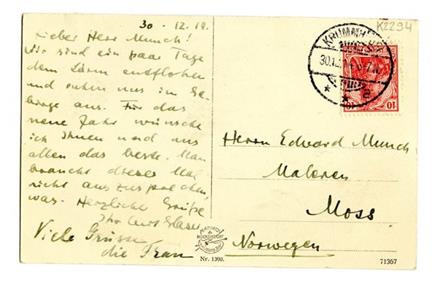 30. 12. 18.
Lieber Herr Munch!
Wir sind ein paar Tage
dem Lärm entflohen
und ruhen uns im Ge-
birge aus. Für das
neue Jahr wünsche
ich Ihnen und uns
allen das beste. Man
braucht dieses Mal
nicht auszusprechen,
was. Herzliche Grüße
Ihr Curt Glaser
Viele Grüsse
die Frau
K2294
KRUMMHÜ
30.12.
10
10
Herrn Edvard Munch
Maleren
Moss
Norwegen
Nr. 1390.
71367